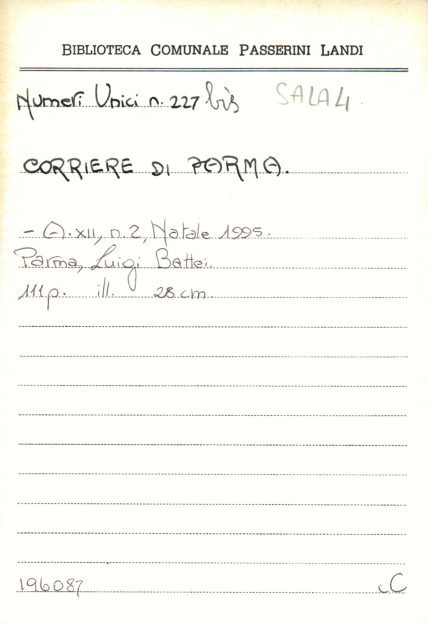 BIBLIOTECA COMUNALE PASSERINI LANDI
Numeri Unici n. 227 bis SALA 4
CORRIERE DI PARMA.
- A. XII, n. 2, Natale 1995.
Parma, Luigi Battei.
111 p. ill. 28 cm.
196087 C